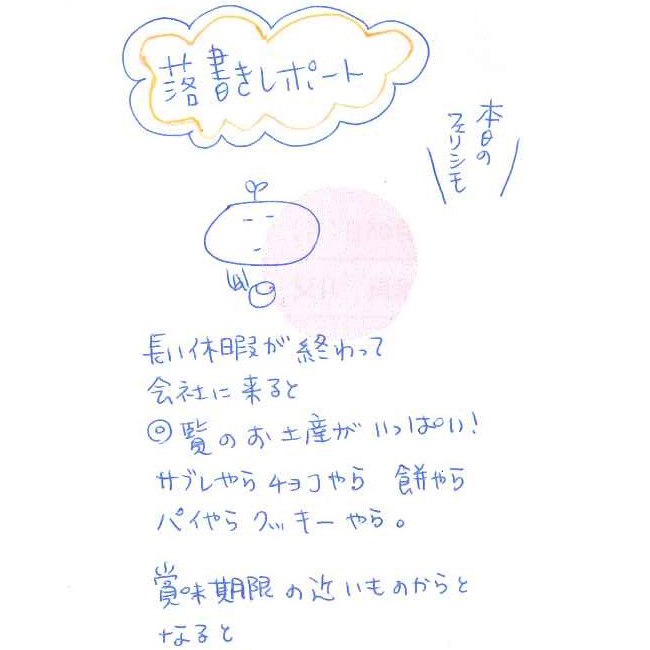 落書きレポート
本日の
フェリシモ
長い休暇が終わって
会社に来ると
◎覧のお土産がいっぱい!
サブレやらチョコやら 餅やら
パイやらクッキーやら。
賞味期限の近いものからと
なると